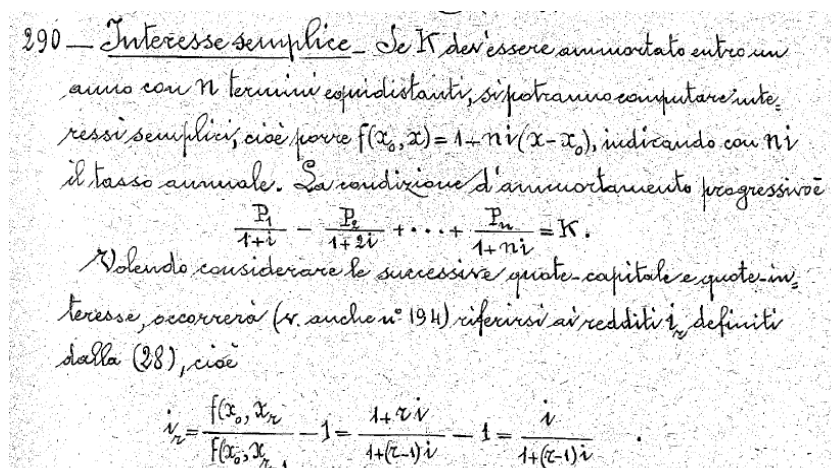 290 — Interesse semplice — Se K dev'essere ammortato entro un
anno con n termini equidistanti, si potranno computare inte=
ressi semplici, cioè porre f(x₀, x) = 1 + ni(x - x₀), indicando con ni
il tasso annuale. La condizione d'ammortamento progressivo è
P₁/(1+i) - P₂/(1+2i) + ··· + Pₙ/(1+ni) = K.
Volendo considerare le successive quote-capitale e quote-in=
teresse, occorrerà (v. anche n° 194) riferirsi ai redditi iᵣ definiti
dalla (28), cioè
iᵣ = f(x₀, xᵣ)/f(x₀, xᵣ₋₁) - 1 = (1+ri)/(1+(r-1)i) - 1 = i/(1+(r-1)i) .